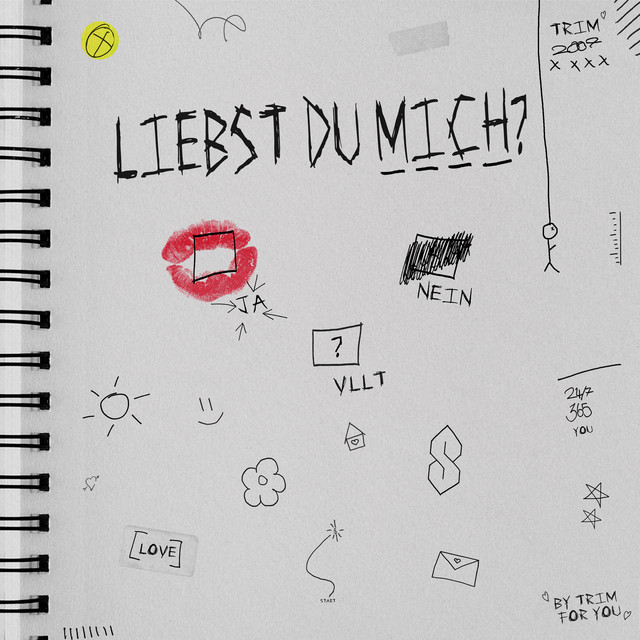 TRIM
2007
X X X X
LIEBST DU MICH?
JA
NEIN
?
VLLT
24/7
365
YOU
[LOVE]
START
BY TRIM
FOR YOU